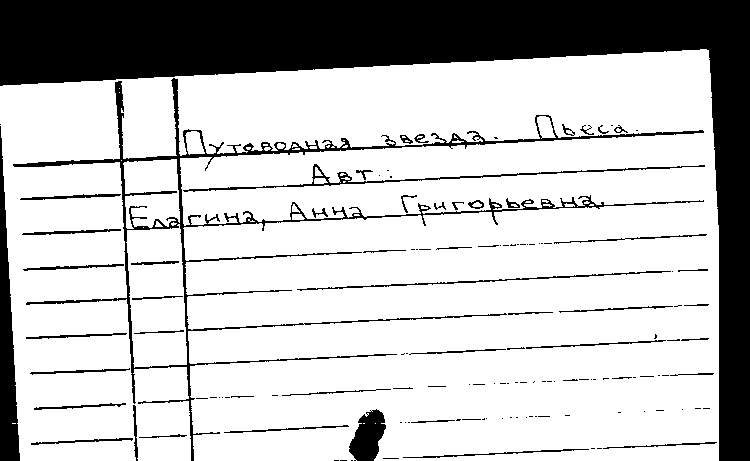 Путеводная звезда. Пьеса.
Авт.:
Елагина, Анна Григорьевна.